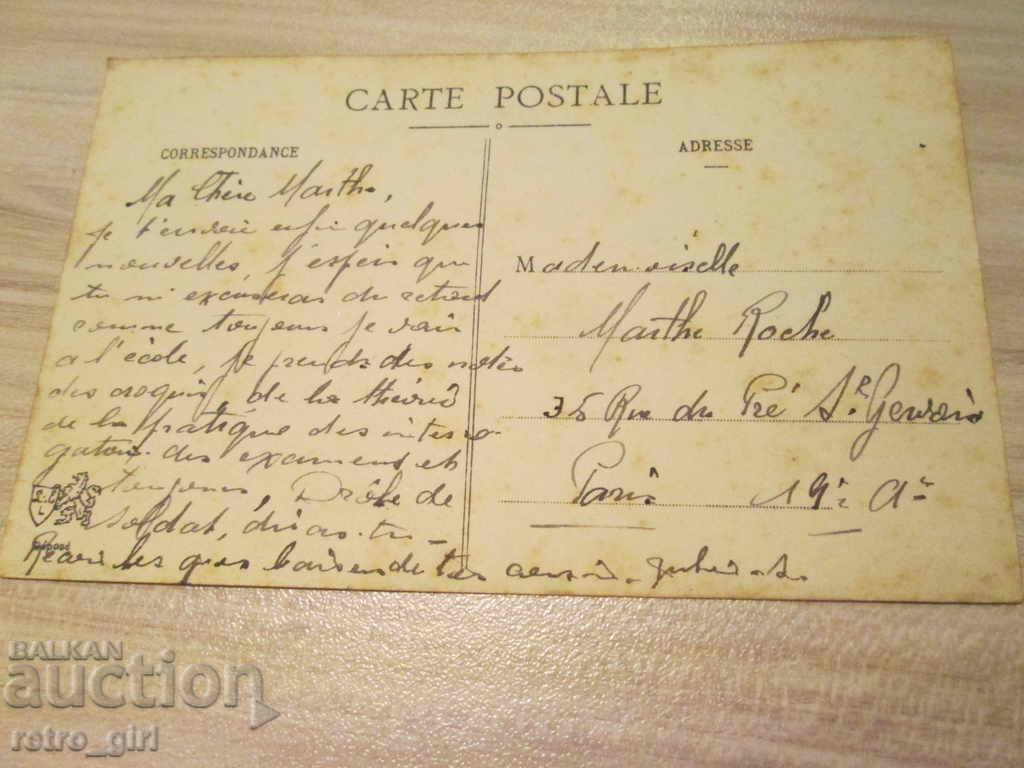 CARTE POSTALE
CORRESPONDANCE
Ma Chère Marthe,
je t'envoie enfin quelques
nouvelles, j'espère que
tu m'excuseras du retard
comme toujours je vais
a l'école, je prends des notes
des croquis, de la théorie
de la pratique des interro-
gatoi. des examens et
toujours, Drôle de
soldat, diras-tu -
Reçois les gros baisers de ton
ADRESSE
Mademoiselle
Marthe Roche
35 Rue du Pré St. Gervais
Paris 19è Ar
BALKAN
auction
retro_girl